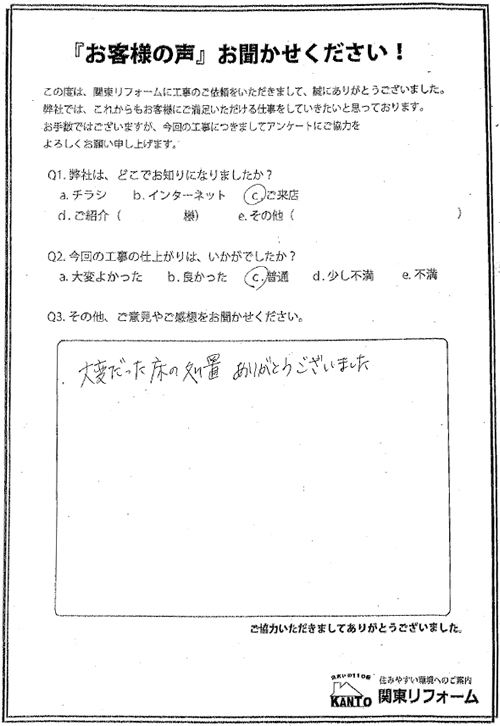 『お客様の声』お聞かせください！
この度は、関東リフォームに工事のご依頼をいただきまして、誠にありがとうございました。
弊社では、これからもお客様にご満足いただける仕事をしていきたいと思っております。
お手数ではございますが、今回の工事につきましてアンケートにご協力を
よろしくお願い申し上げます。
Q1. 弊社は、どこでお知りになりましたか？
a. チラシ　b. インターネット　c. ご来店
d. ご紹介（　　　　様）　e. その他（　　　　　　　）
Q2. 今回の工事の仕上がりは、いかがでしたか？
a. 大変よかった　b. 良かった　c. 普通　d. 少し不満　e. 不満
Q3. その他、ご意見やご感想をお聞かせください。
大変だった床の処置 ありがとうございました
ご協力いただきましてありがとうございました。
住まいの110番
KANTO
住みやすい環境へのご案内
関東リフォーム